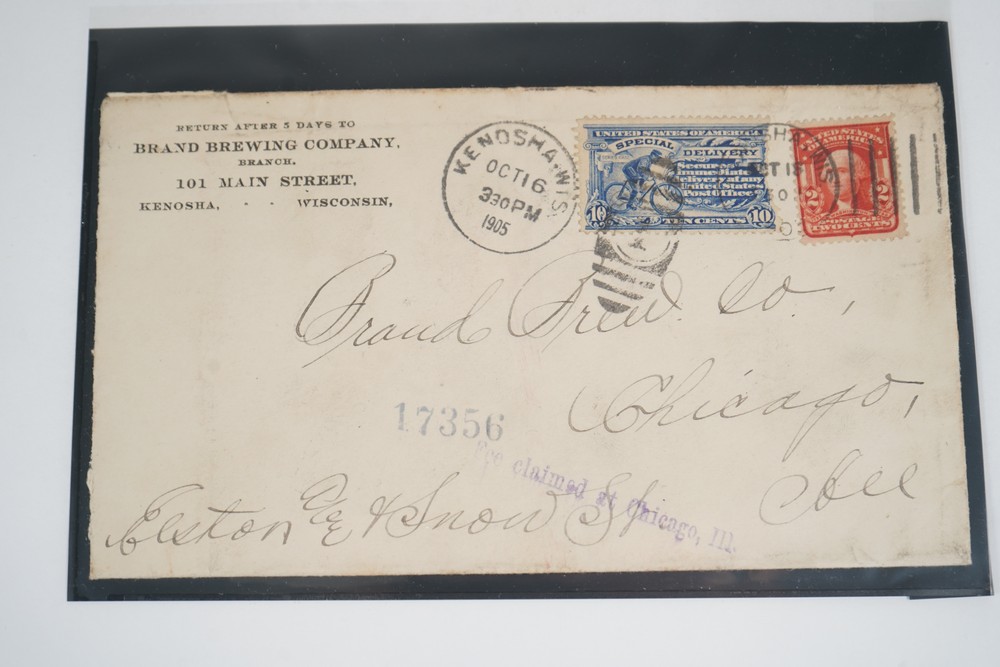 RETURN AFTER 5 DAYS TO
BRAND BREWING COMPANY,
BRANCH.
101 MAIN STREET,
KENOSHA, - - WISCONSIN,
KENOSHA, WIS.
OCT 16
330 PM
1905
UNITED STATES OF AMERICA
SPECIAL DELIVERY
Secures
immediate
delivery at any
United States
Post Office
10 TEN CENTS 10
UNITED STATES
OF AMERICA
2 2
POSTAGE
TWO CENTS
Brand Brew. Co.,
Chicago,
Ill
17356
Fee claimed at Chicago, Ill.
Elston Ave & Snow St